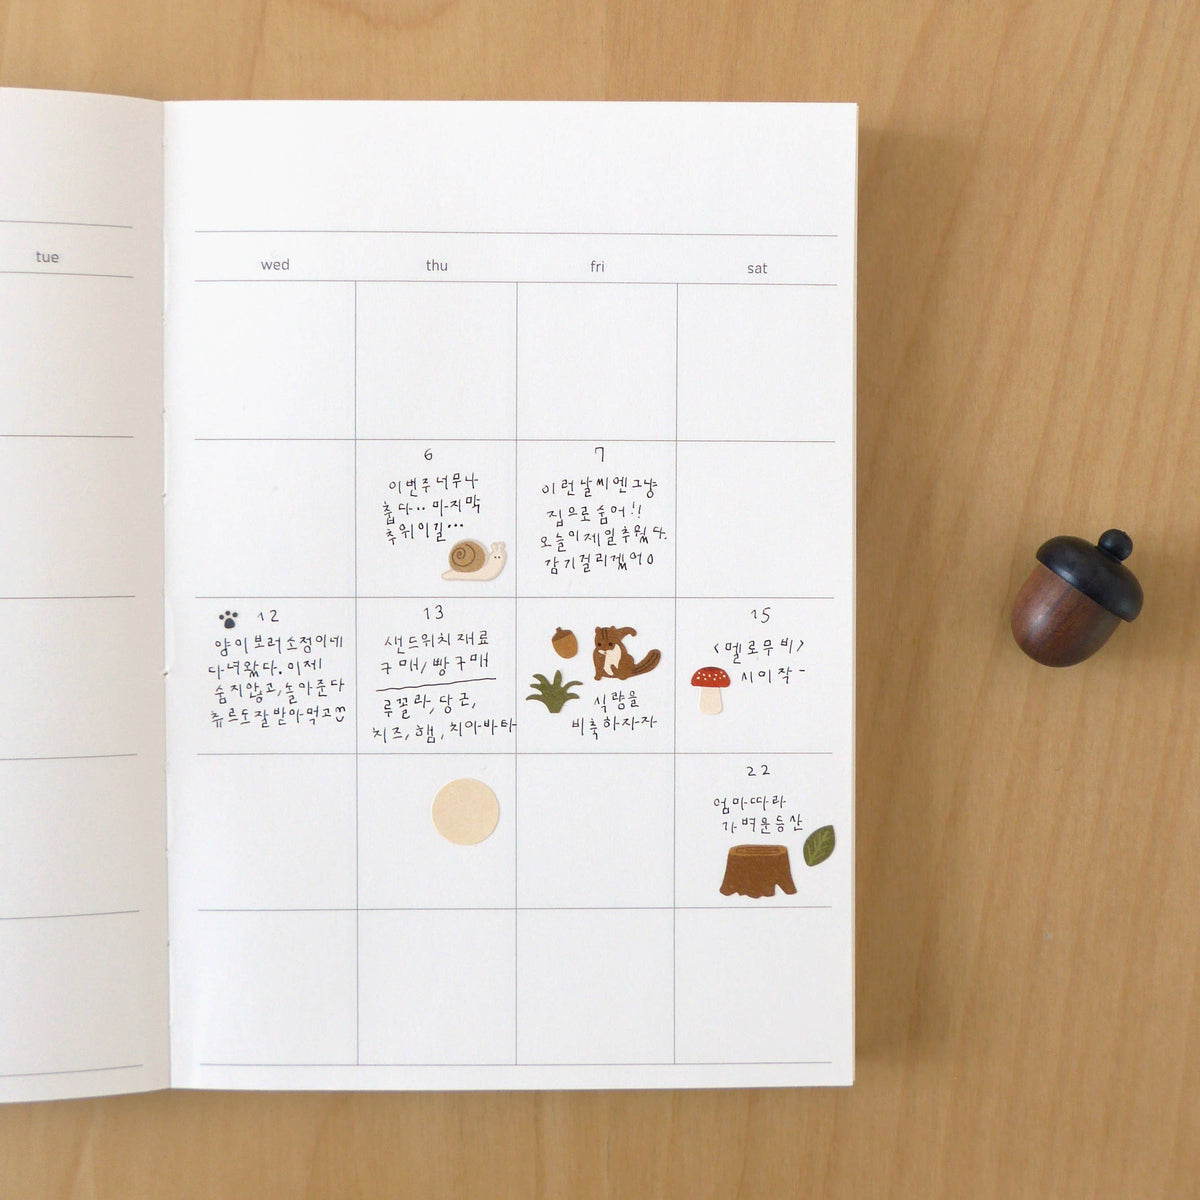 tue
wed
thu
fri
sat
6
이번주 너무나
춥다.. 마지막
추위이길...
7
이런날씨엔 그냥
집으로 숨어!!
오늘이 제일 추웠다.
감기걸리겠어o
12
양이보러 소정이네
다녀왔다. 이제
숨지않고, 놀아준다
츄르도 잘 받아먹고
13
샌드위치 재료
구매/빵구매
루꼴라, 당근,
치즈, 햄, 치아바타
식량을
비축하자자
15
<멜로무비>
시이작-
22
엄마따라
가벼운등산